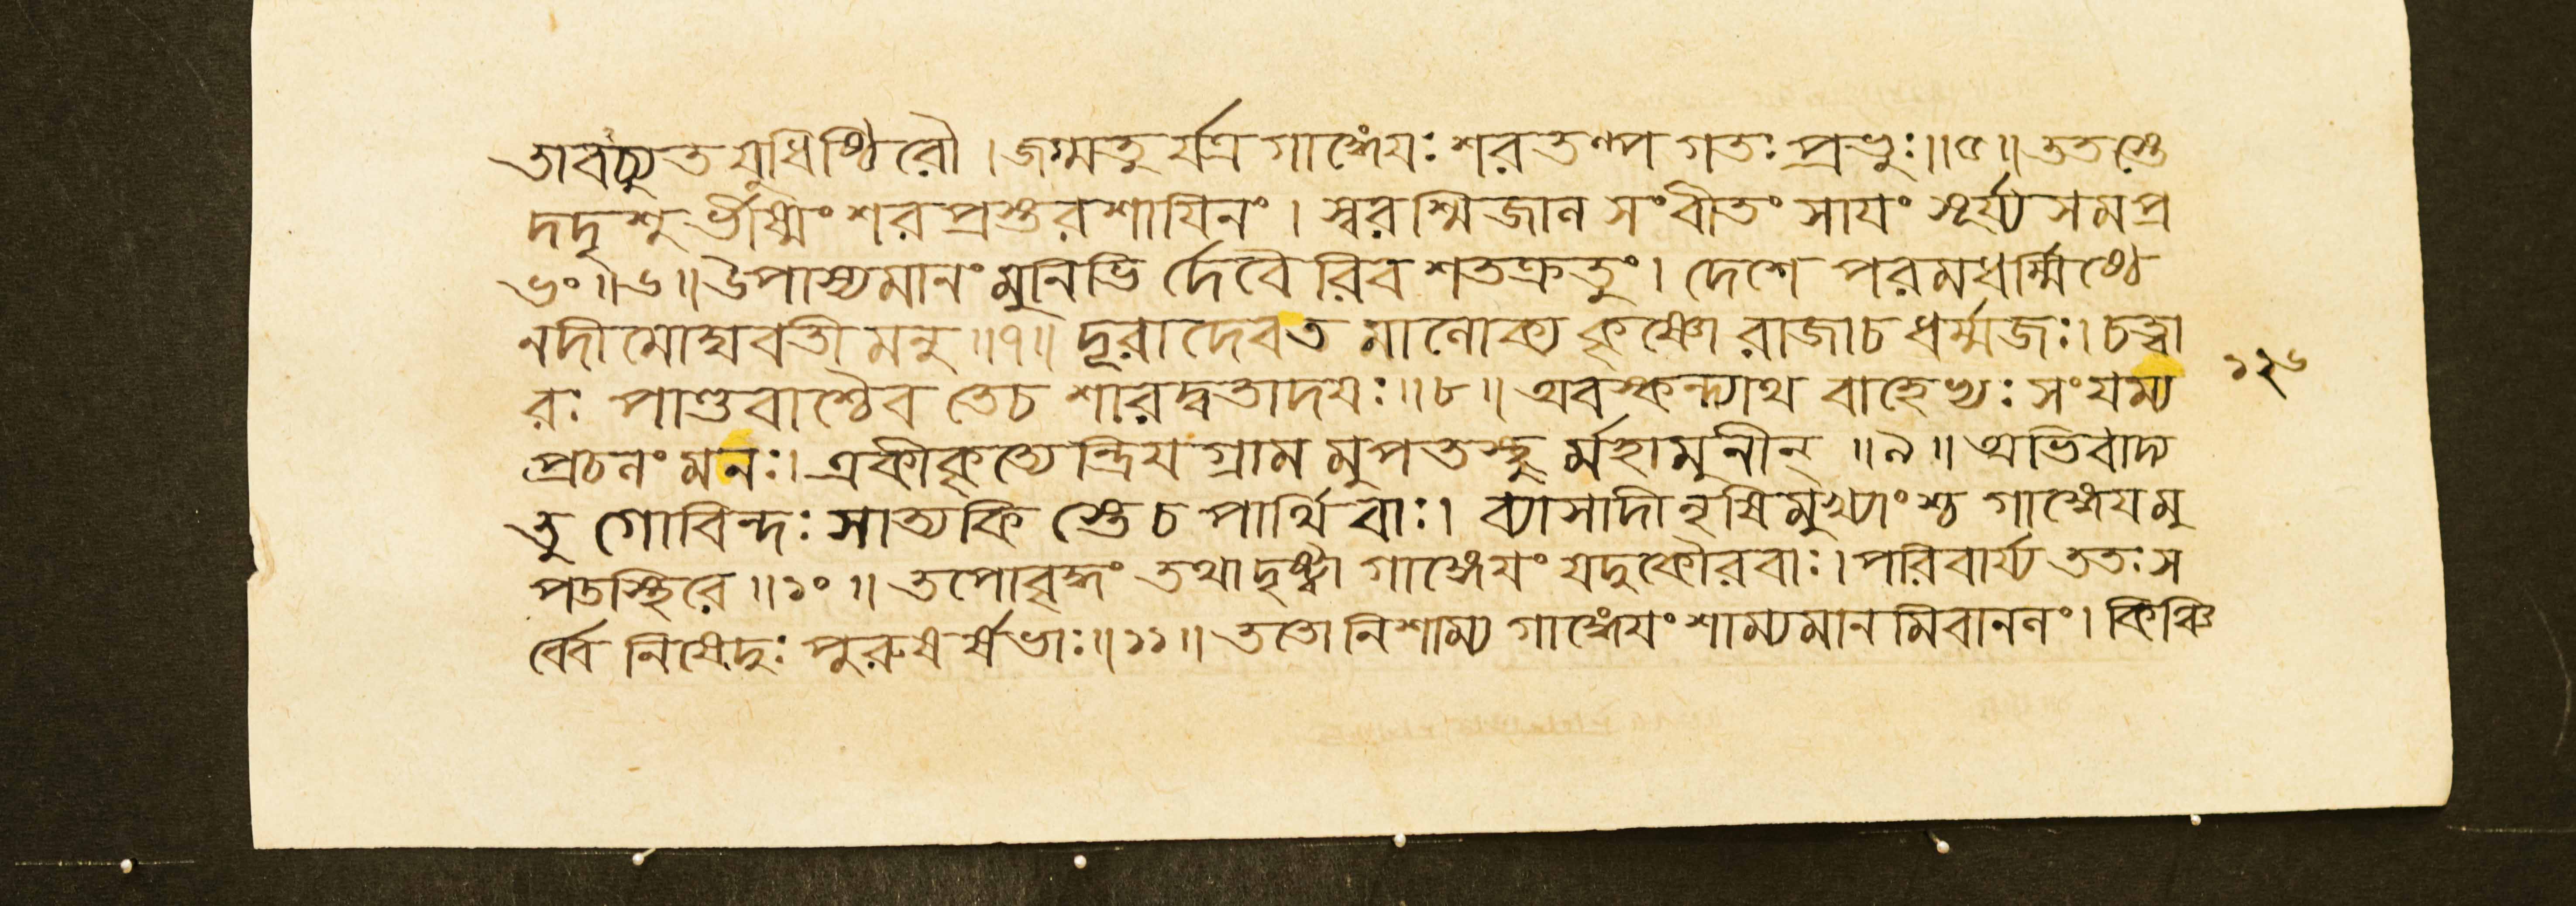 তাবচ্যুতযুধিষ্ঠিরৌ। জগ্মতুর্যত্র গাঙ্গেয়ঃ শরতল্পগতঃ প্রভুঃ॥৫॥ ততস্তে
দদৃশুর্ভীষ্মং শরপ্রস্তরশায়িনং। স্বরশ্মিজাল সংবীতং সায়ং সূর্য্যসমপ্র
ভং॥৬॥ উপাস্যমানং মুনিভির্দেবৈরিব শতক্রতুং। দেশে পরমধর্ম্মিষ্ঠে
নদীমোঘবতীমনু॥৭॥ দূরাদেব তমালোক্য কৃষ্ণো রাজাচ ধর্ম্মজঃ। চত্বা
রঃ পাণ্ডবাশ্চৈব তেচ শারদ্বতাদয়ঃ॥৮॥ অবস্কন্দ্যাথ বাহেভ্যঃ সংযম্য
প্রচলং মনঃ। একীকৃত্যেন্দ্রিয়গ্রামমুপতস্থুর্মহামুনীন্॥৯॥ অভিবাদ্য
তু গোবিন্দঃ সাত্যকিস্তেচ পার্থিবাঃ। ব্যাসাদীনৃষিমুখ্যাংশ্চ গাঙ্গেয়মু
পতস্থিরে॥১০॥ তপোবৃদ্ধং তথা দৃষ্ট্বা গাঙ্গেয়ং যদুকৌরবাঃ। পরিবার্য্য ততঃ স
র্ব্বে নিষেদুঃ পুরুষর্ষভাঃ॥১১॥ ততো নিশাম্য গাঙ্গেয়ং শাম্যমানমিবাননং। কিঞ্চি
১২৬